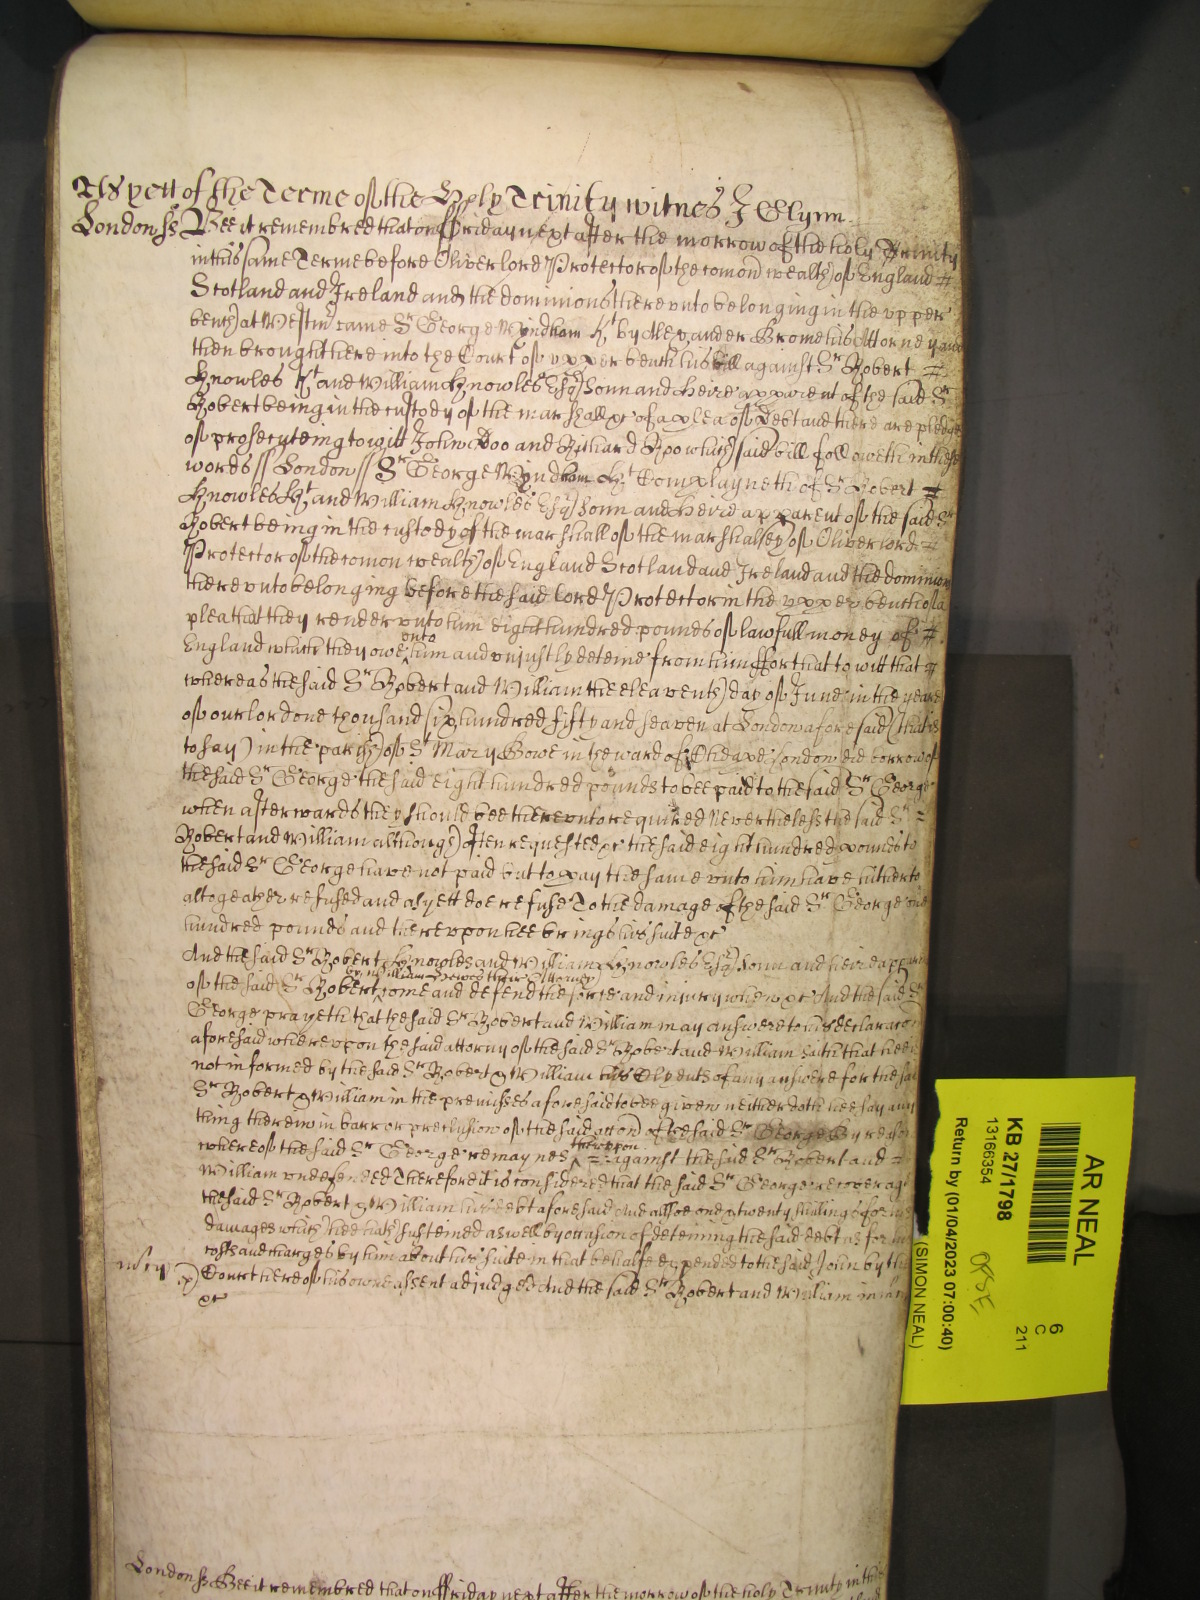 As yett of the Terme of the Holy Trinity witnes J Glynn
London ss Bee it remembred that on ffriday next after the morrow of the holy Trinity
in this same Terme before Oliver lord Protector of the comon wealth of England
Scotland and Ireland and the dominions there unto belonging in the upper
bench at Westmr came Sr George Wyndham Kt by Alexander Brome his Attorney and
then brought here into the Court of upper bench his bill against Sr Robert
Knowles Kt and William Knowles Esqr Sonn and heire apparent of the said Sr
Robert being in the custody of the marshall &c of a plea of Debt and there are pledges
of prosecuteing to witt John Doo and Richard Roo which said bill followeth in these
words // London // Sr George Wyndham Kt Complayneth of Sr Robert
Knowles Kt and William Knowles Esqr Sonn and heire apparent of the said Sr
Robert being in the custody of the marshall of the marshalsey of Oliver lord
Protector of the comon wealth of England Scotland and Ireland and the dominions
thereunto belonging before the said lord Protector in the upper bench of a
plea that they render unto him eight hundred pounds of lawfull money of
England which they owe unto him and unjustly deteine from him ffor that to witt that
whereas the said Sr Robert and William the eleaventh day of June in the yeare
of our lord one thousand six hundred fifty and seaven at London aforesaid (that is
to say) in the parish of St Mary Bowe in the ward of Cheape London did borrow of
the said Sr George the said eight hundred pounds to bee paid to the said Sr George
when afterwards they should bee thereunto required Nevertheless the said Sr
Robert and William although often requested &c the said eight hundred pounds to
the said Sr George have not paid but to pay the same unto him have hitherto
altogeather refused and as yett doe refuse To the damage of the said Sr George one
hundred pounds and thereupon hee brings his suite &c
And the said Sr Robert Knowles and William Knowles Esqr Sonn and heire apparent
of the said Sr Robert by William Hewes their Attorney come and defend the force and injury when &c And the said Sr
George prayeth that the said Sr Robert and William may answere to his declaracon
aforesaid whereupon the said attorny of the said Sr Robert and William saith that hee is
not informed by the said Sr Robert & William his Clyents of any answere for the said
Sr Robert & William in the premisses aforesaid to bee given neither doth hee say any
thing therein in barr or preclusion of the said accon of the said Sr George by reason
whereof the said Sr George remaynes thereupon against the said Sr Robert and
William undefended Therefore it is considered that the said Sr George recover agt
the said Sr Robert & William his debt aforesaid And allsoe one & twenty shillings for his
damages which hee hath susteined aswell by occasion of deteining the said debt as for his
costs and charges by him about his suite in that behalfe expended to the said John by the
Court here of his owne assent adjudged And the said Sr Robert and William in
&c
London ss Bee it remembred that on ffriday next after the morrow of the holy Trinity in this
AR NEAL
KB 27/1798
13166354
Return by (01/04/2023 07:00:40)
(SIMON NEAL)
6
C
211